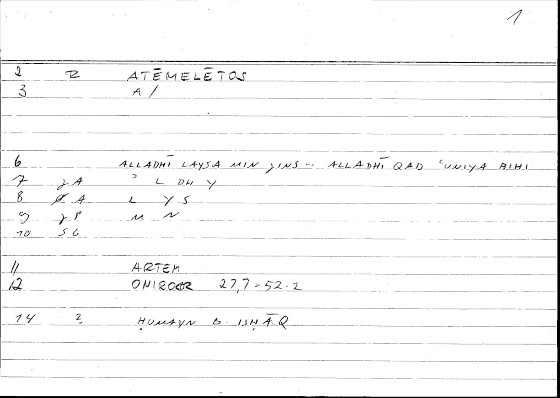 1
2 R ATĒMELĒTOS
3 A/
6 ALLADHĪ LAYSA MIN ǧINS... ALLADHĪ QAD ʿUNIYA BIHI
7 ǧA ʾ L DH Y
8 A L Y S
9 ǧP M N
10 SG
11 ARTEM
12 ONIROCR 27,7 = 52.2
14 ? ḤUNAYN B. ISḤĀQ